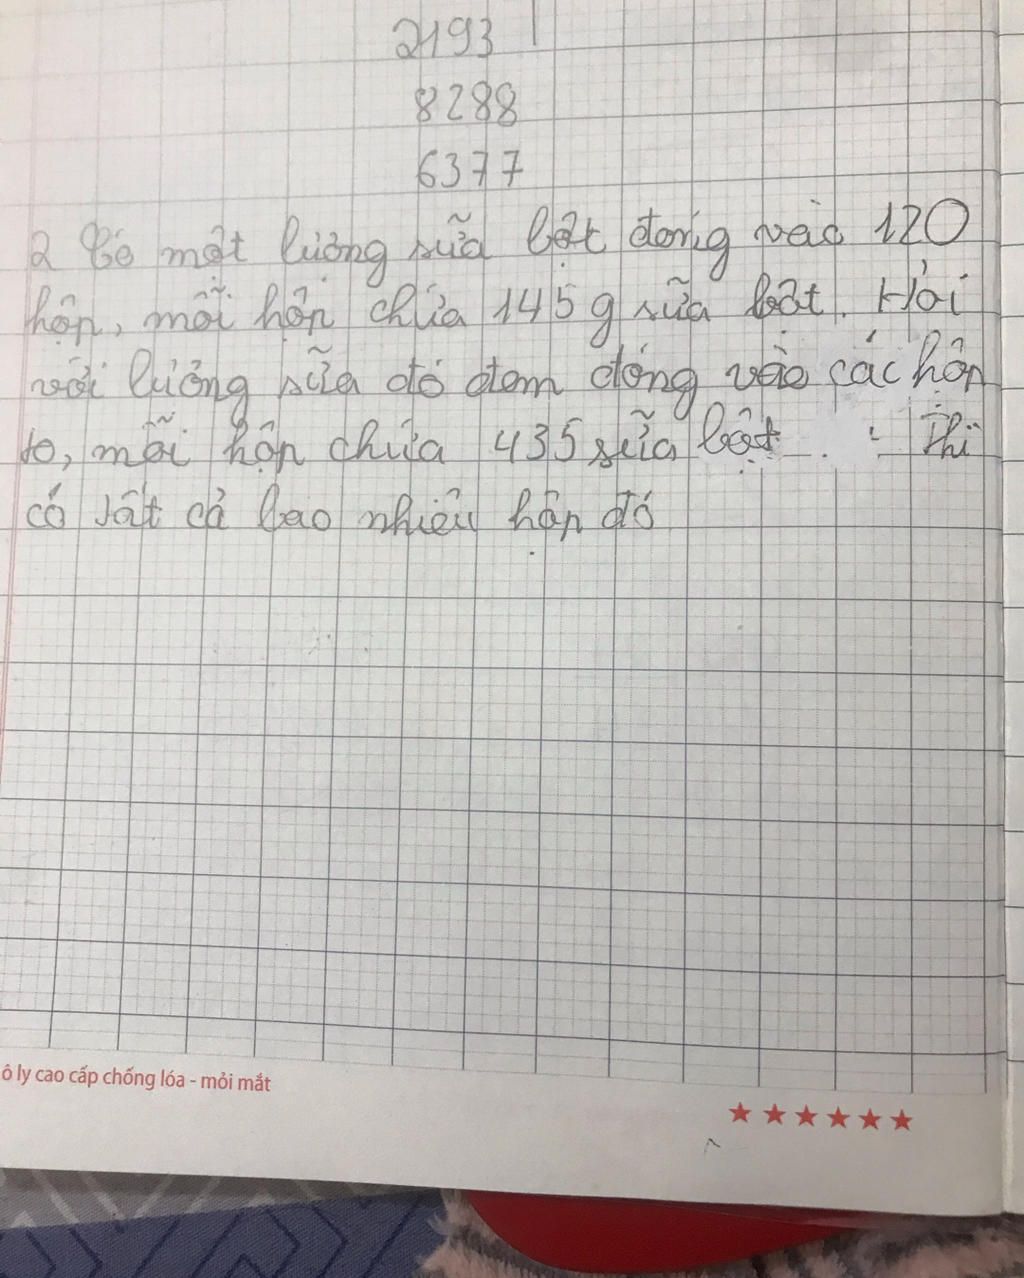 2193
8288
6377
2 Có một lượng sữa bột đóng vào 120
hộp, mỗi hộp chứa 145 g sữa bột. Hỏi
với lượng sữa đó đem đóng vào các hộp
to, mỗi hộp chứa 435 sữa bột thì
có tất cả bao nhiêu hộp đó
ô ly cao cấp chống lóa - mỏi mắt